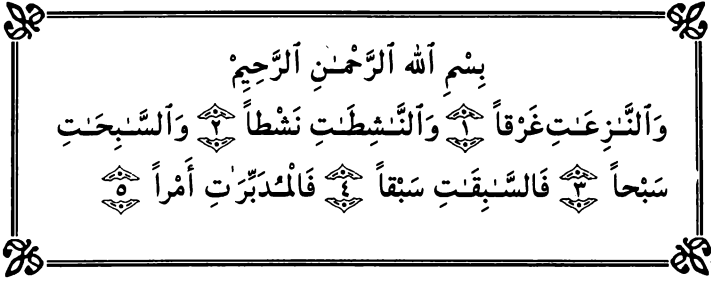 بِسْمِ ٱللهِ ٱلرَّحْمَـٰنِ ٱلرَّحِيمِْ
وَٱلنَّـٰزِعَـٰتِ غَرْقاً ١ وَٱلنَّـٰشِطَـٰتِ نَشْطاً ٢ وَٱلسَّـٰبِحَـٰتِ
سَبْحاً ٣ فَالسَّـٰبِقَـٰتِ سَبْقاً ٤ فَالْمُدَبِّرَٰتِ أَمْراً ٥